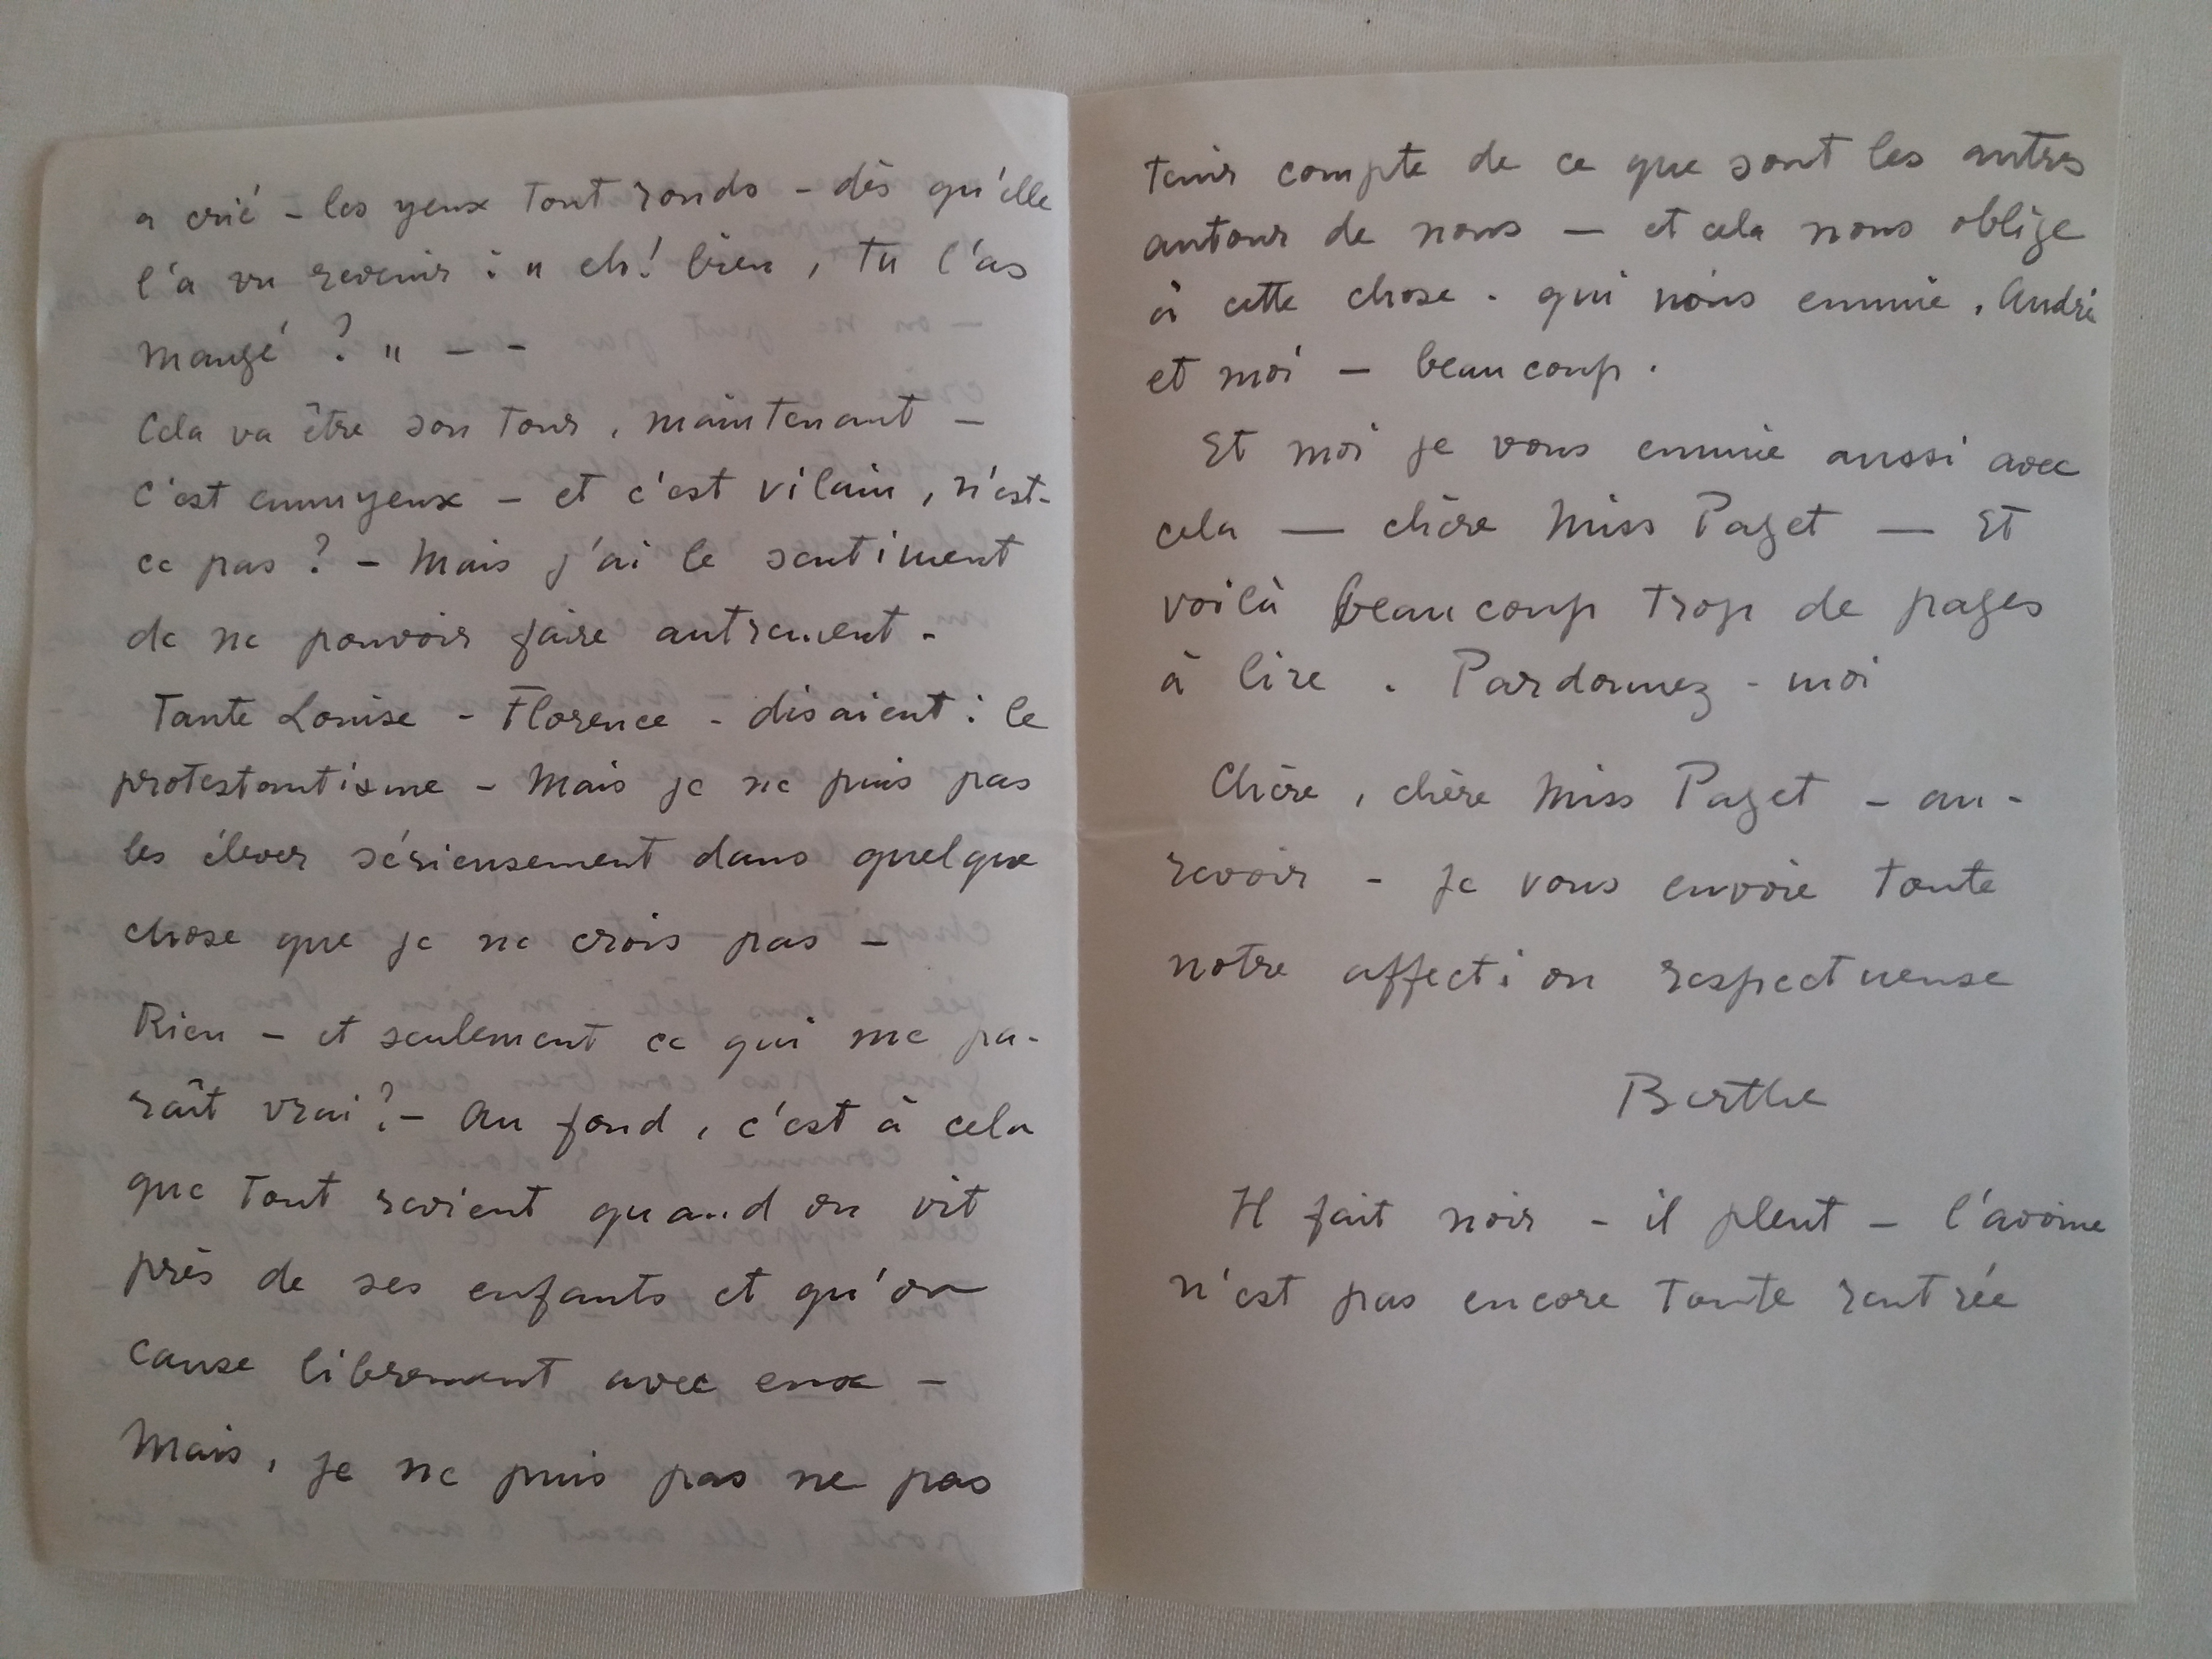 a crié – les yeux tout ronds – dès qu'elle
l'a vu revenir : " eh! bien, tu l'as
mangé ? " – –
Cela va être son tour, maintenant –
C'est ennuyeux – et c'est vilain, n'est-
ce pas ? – Mais j'ai le sentiment
de ne pouvoir faire autrement.
Tante Louise – Florence – disaient : le
protestantisme – Mais je ne puis pas
les élever sérieusement dans quelque
chose que je ne crois pas –
Rien – et seulement ce qui me pa-
raît vrai ? – Au fond, c'est à cela
que tout revient quand on vit
près de ses enfants et qu'on
cause librement avec eux –
Mais, je ne puis pas ne pas
tenir compte de ce que sont les autres
autour de nous – et cela nous oblige
à cette chose . qui nous ennuie, André
et moi – beaucoup .
Et moi je vous ennuie aussi avec
cela — chère Miss Paget — Et
voilà beaucoup trop de pages
à lire . Pardonnez-moi
Chère, chère Miss Paget – au-
revoir – Je vous envoie toute
notre affection respectueuse
Berthe
Il fait noir – il pleut – l'avoine
n'est pas encore toute rentrée